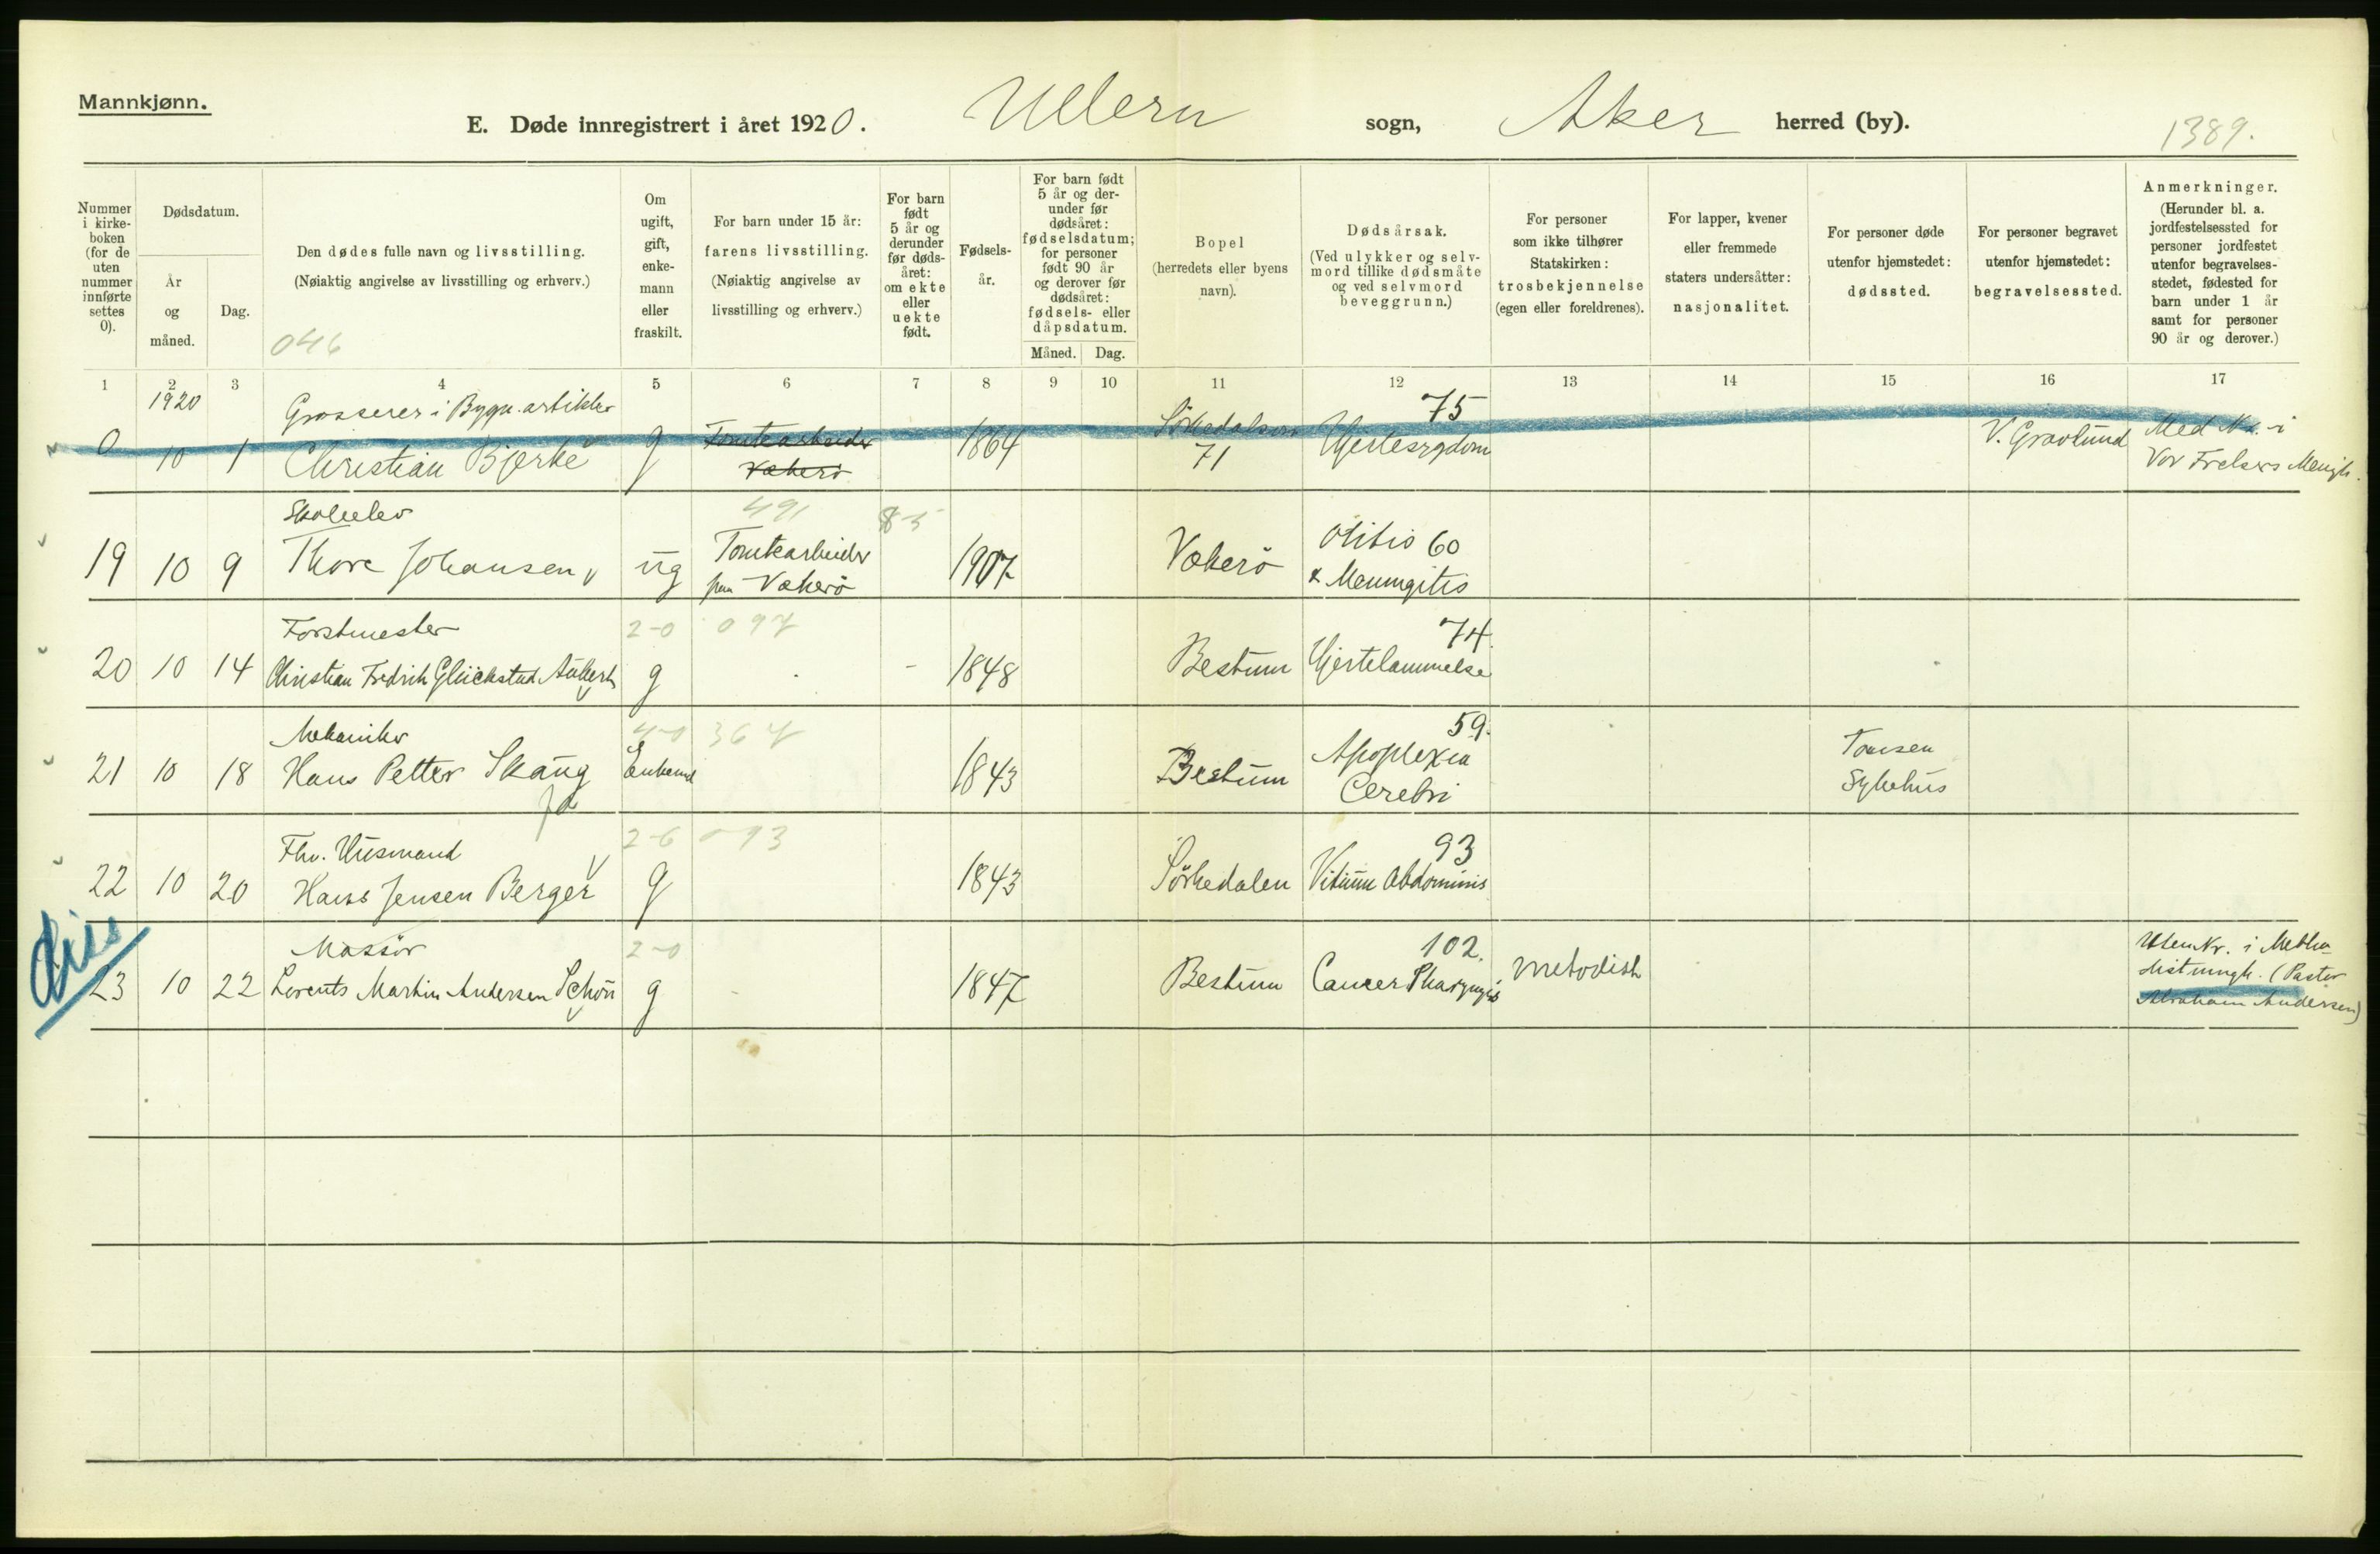 Mannkjønn.
E. Døde innregistrert i året 1920. Ullern sogn, Aker herred (by). 1389.
Nummer
i kirke-
boken
(for de
uten
nummer
innførte
settes
0).
Dødsdatum.
År
og
måned.
Dag.
Den dødes fulle navn og livsstilling.
(Nøiaktig angivelse av livsstilling og erhverv.)
046
Om
ugift,
gift,
enke-
mann
eller
fraskilt.
For barn under 15 år:
farens livsstilling.
(Nøiaktig angivelse av
livsstilling og erhverv.)
For barn
født
5 år og
derunder
før døds-
året:
om ekte
eller
uekte
født.
Fødsels-
år.
For barn født
5 år og der-
under før
dødsåret:
fødselsdatum;
for personer
født 90 år
og derover før
dødsåret:
fødsels- eller
dåpsdatum.
Måned. Dag.
Bopel
(herredets eller byens
navn).
Dødsårsak.
(Ved ulykker og selv-
mord tillike dødsmåte
og ved selvmord
beveggrunn.)
For personer
som ikke tilhører
Statskirken:
trosbekjennelse
(egen eller foreldrenes).
For lapper, kvener
eller fremmede
staters undersåtter:
nasjonalitet.
For personer døde
utenfor hjemstedet:
dødssted.
For personer begravet
utenfor hjemstedet:
begravelsessted.
Anmerkninger.
(Herunder bl. a.
jordfestelsessted for
personer jordfestet
utenfor begravelses-
stedet, fødested for
barn under 1 år
samt for personer
90 år og derover.)
1 2 3 4 5 6 7 8 9 10 11 12 13 14 15 16 17
1920 Grosserer i Bygn. artikler Tomtearbeider Sörkedalsvn 75 Med Nr. i
0 10 1 Christian Bjerke g Vækerö 1864 71 Hjertesygdom V. Gravlund Vor Frelsers Menigh.
Skoleelev 491 85
19 10 9 Thore Johansen ug Tomtearbeider 1907 Vækerö Otitis 60
Vækerö & Meningitis
Forstmester 2-0 097 74.
20 10 14 Christian Fredrik Glückstad Aubert g - 1848 Bestum Hjertelammelse
Mekaniker 4-0 367 59.
21 10 18 Hans Petter Skaug Enkemd 1843 Bestum Apoplexia Tonsen
Cerebri Sykehus
Fhv. Husmand 2-6 093 93
22 10 20 Hans Jensen Berger g 1843 Sörkedalen Vitium Abdominis
Massör 2-0 102. Uten Nr. i Metho-
23 10 22 Lorents Martin Andersen Schou g 1847 Bestum Cancer Pharyngis Metodist distmngh. (Pastor
Abraham Andersen)
Diss